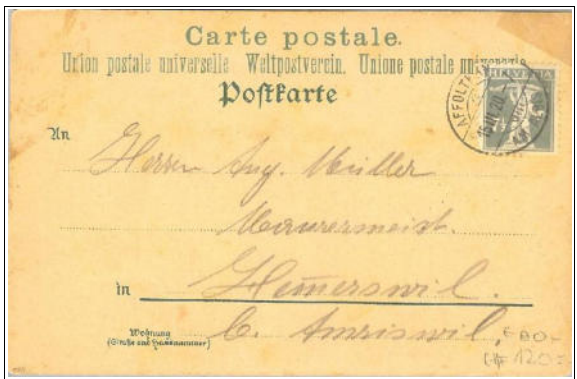 Carte postale.
Union postale universelle Weltpostverein. Unione postale universale
Postkarte
HELVETIA
An
Herrn Aug. Müller
Maurermeist.
in Hemerswil.
Wohnung
(Straße und Hausnummer)
b. Amriswil,
120.-